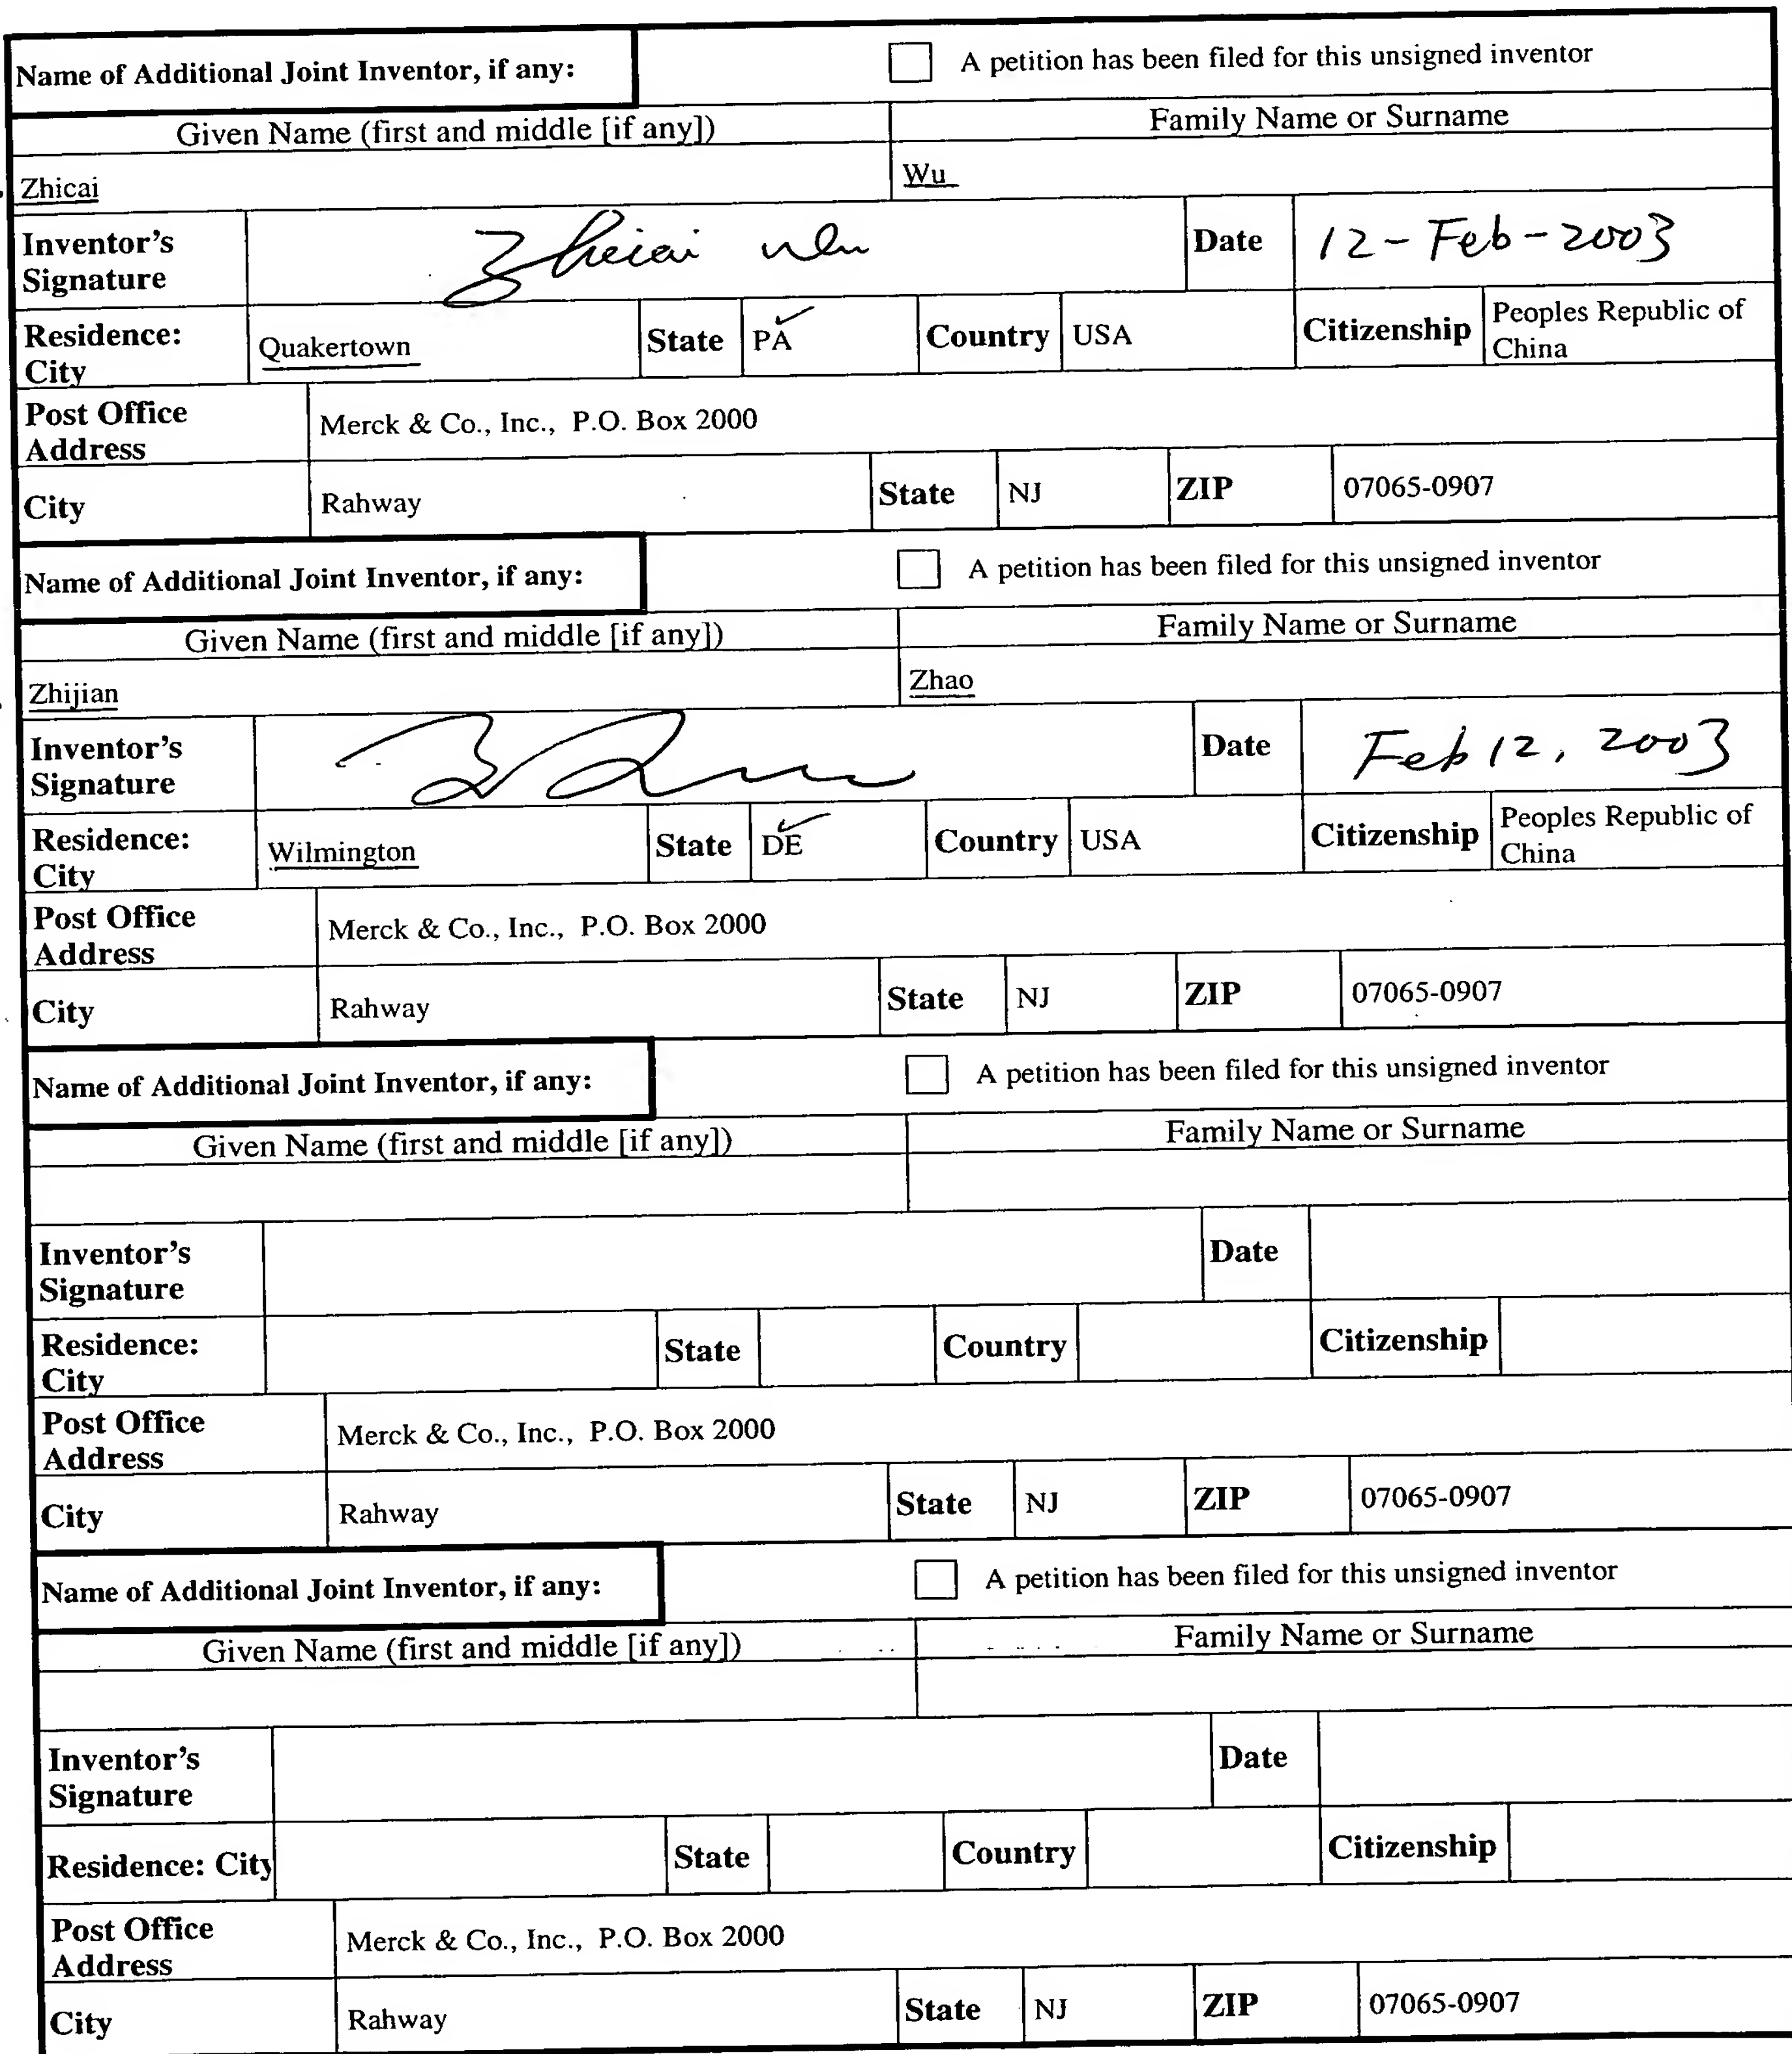 Name of Additional Joint Inventor, if any: A petition has been filed for this unsigned inventor
Given Name (first and middle [if any]) Family Name or Surname
Zhicai Wu
Inventor's Signature Zhicai Wu Date 12-Feb-2003
Residence: City Quakertown State PA Country USA Citizenship Peoples Republic of China
Post Office Address Merck & Co., Inc., P.O. Box 2000
City Rahway State NJ ZIP 07065-0907
Name of Additional Joint Inventor, if any: A petition has been filed for this unsigned inventor
Given Name (first and middle [if any]) Family Name or Surname
Zhijian Zhao
Inventor's Signature Date Feb 12, 2003
Residence: City Wilmington State DE Country USA Citizenship Peoples Republic of China
Post Office Address Merck & Co., Inc., P.O. Box 2000
City Rahway State NJ ZIP 07065-0907
Name of Additional Joint Inventor, if any: A petition has been filed for this unsigned inventor
Given Name (first and middle [if any]) Family Name or Surname
Inventor's Signature Date
Residence: City State Country Citizenship
Post Office Address Merck & Co., Inc., P.O. Box 2000
City Rahway State NJ ZIP 07065-0907
Name of Additional Joint Inventor, if any: A petition has been filed for this unsigned inventor
Given Name (first and middle [if any]) Family Name or Surname
Inventor's Signature Date
Residence: City State Country Citizenship
Post Office Address Merck & Co., Inc., P.O. Box 2000
City Rahway State NJ ZIP 07065-0907